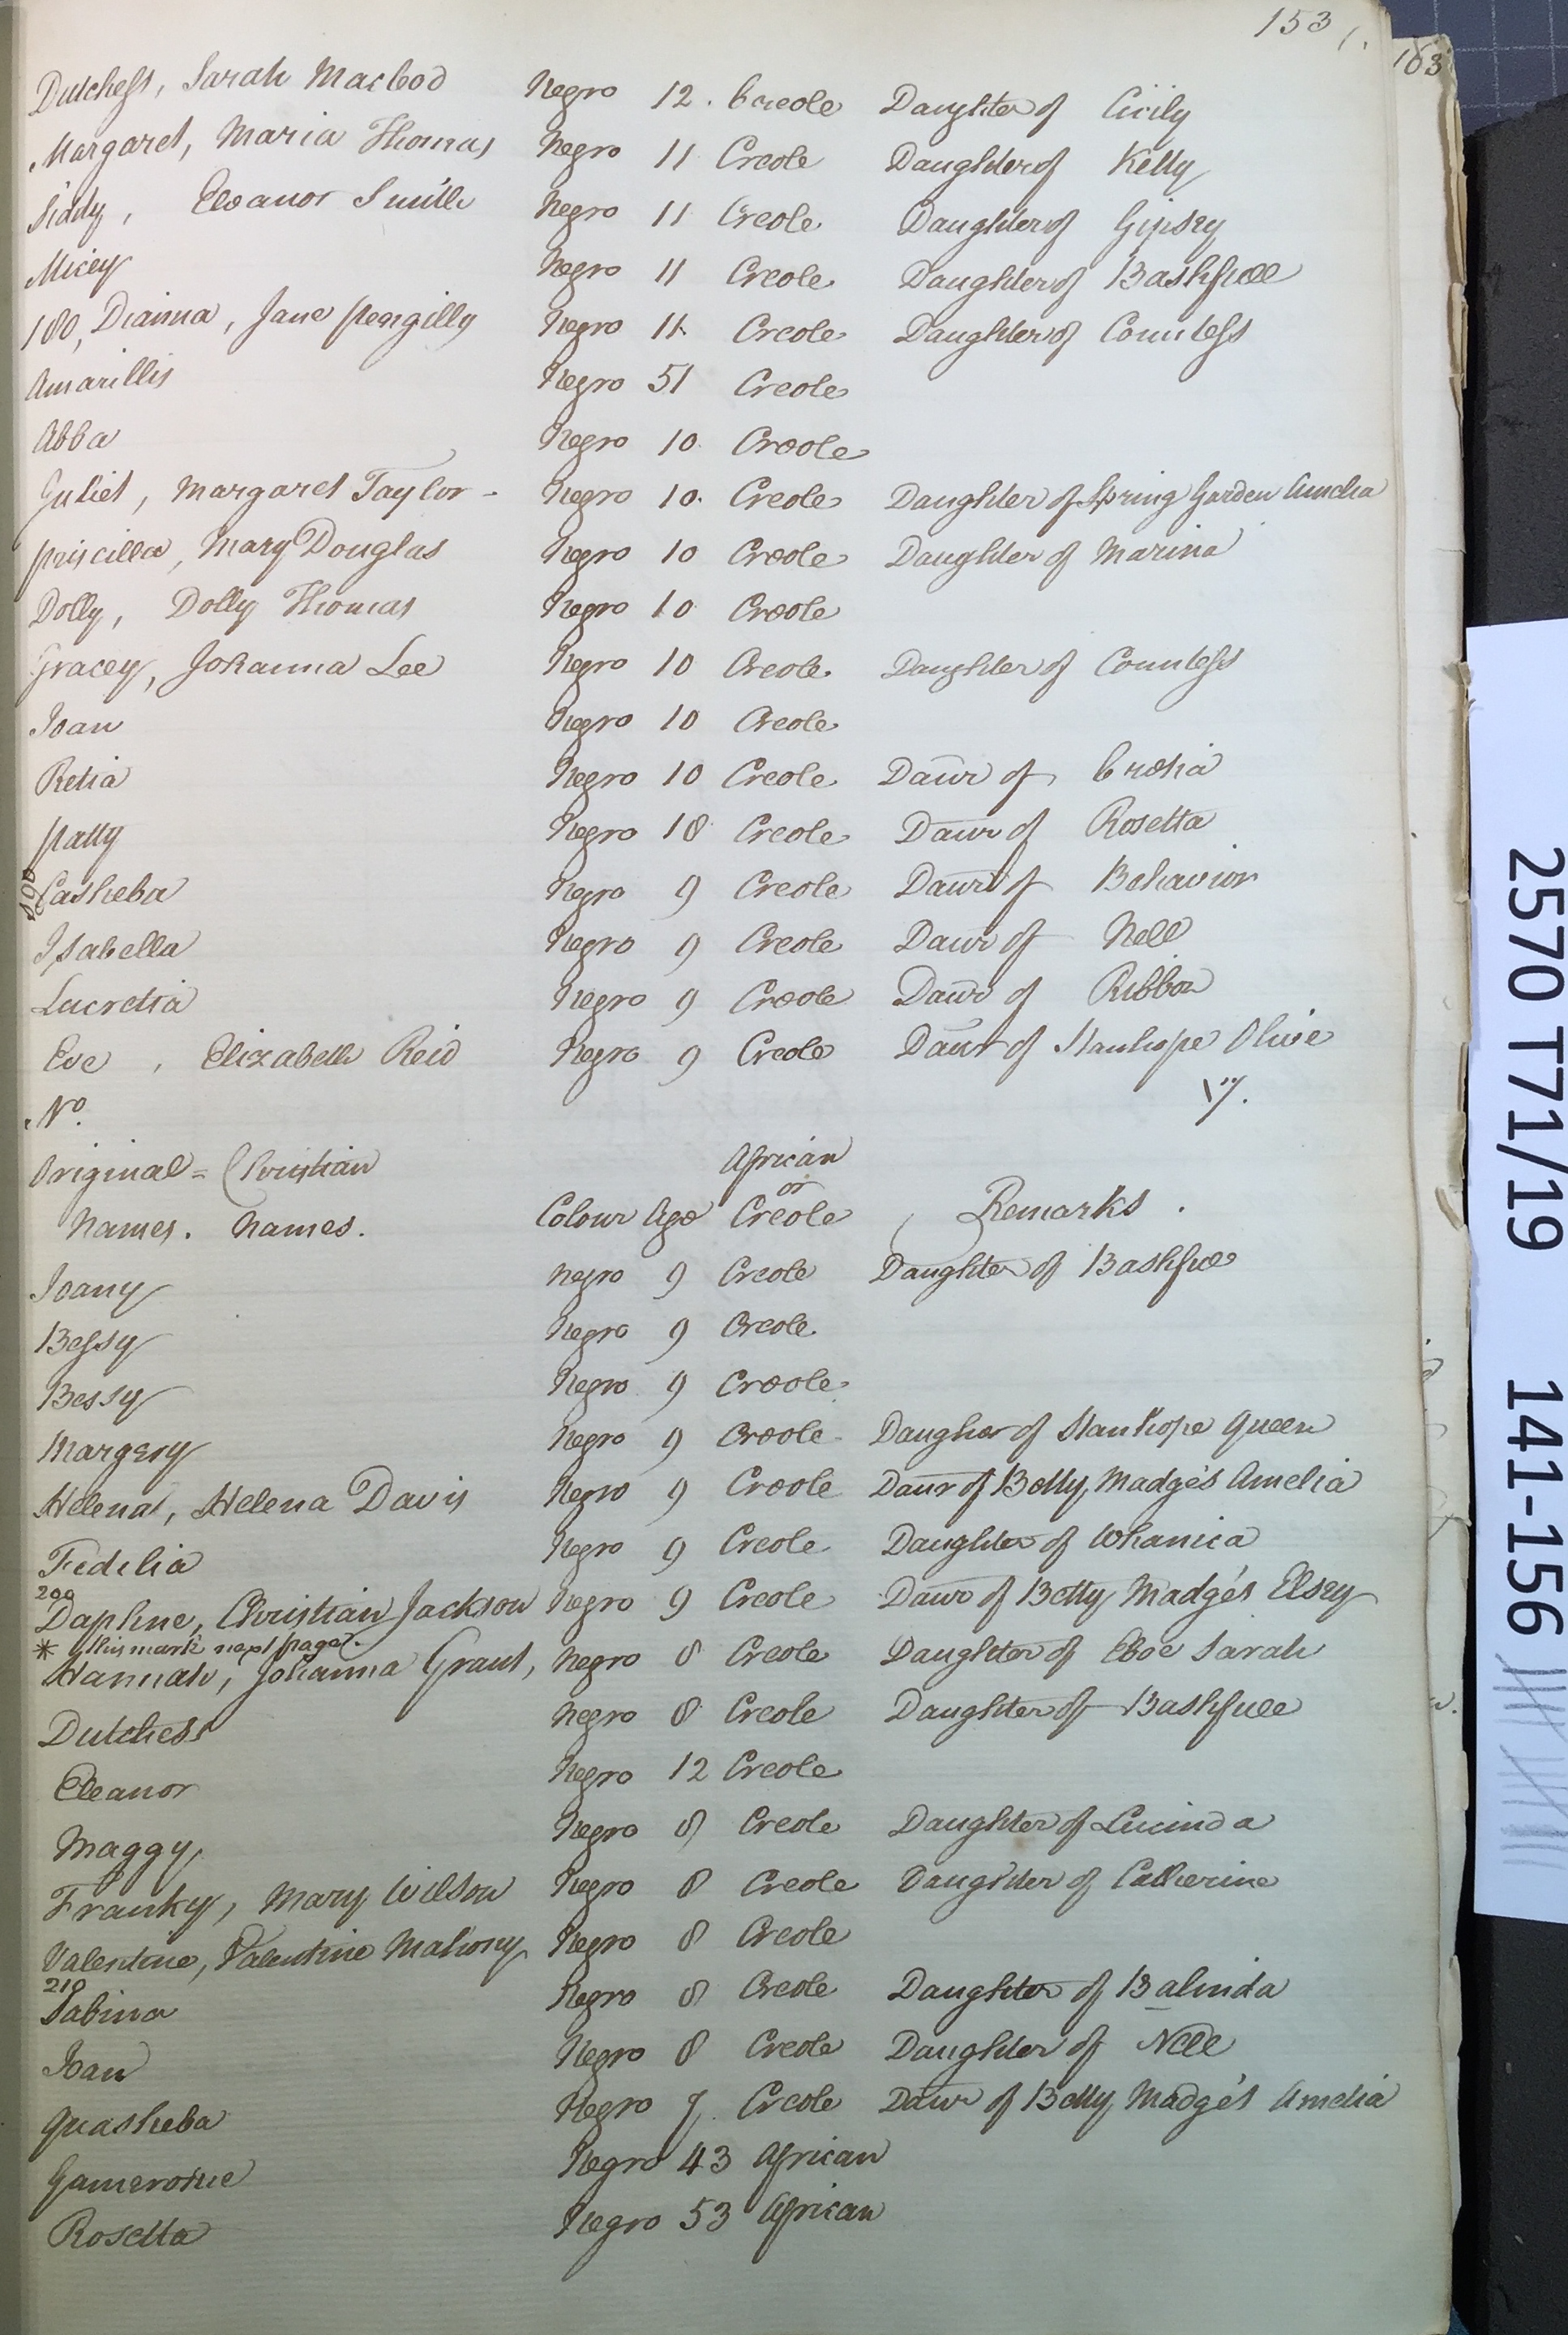 153
163
Dutchess, Sarah Macleod Negro 12. Creole Daughter of Cicily
Margaret, Maria Thomas Negro 11 Creole Daughter of Kelly
Siddy, Eleanor Smith Negro 11 Creole Daughter of Gipsey
Micey Negro 11 Creole Daughter of Bashfull
180, Dianna, Jane Pengilly Negro 11. Creole Daughter of Countess
Amarillis Negro 51 Creole
Abba Negro 10. Creole
Juliet, Margaret Taylor - Negro 10. Creole Daughter of Spring Garden Amelia
Priscilla, Mary Douglas Negro 10 Creole Daughter of Marina
Dolly, Dolly Thomas Negro 10 Creole
Gracey, Johanna Lee Negro 10 Creole Daughter of Countess
Joan Negro 10 Creole
Retia Negro 10 Creole Daur of Cretia
Patty Negro 10 Creole Daur of Rosetta
Casheba Negro 9 Creole Daur of Behavior
Isabella Negro 9 Creole Daur of Nell
Lucretia Negro 9 Creole Daur of Ribbon
Eve, Elizabeth Reid Negro 9 Creole Daur of Stanhope Olive
No.
African
Original = Christian or
Names. Names. Colour Age Creole Remarks.
Joany Negro 9 Creole Daughter of Bashful
Bessy Negro 9 Creole
Bessy Negro 9 Creole
Margery Negro 9 Creole Daugher of Stanhope Queen
Helena, Helena Davis Negro 9 Creole Daur of Betty Madge's Amelia
Fidelia Negro 9 Creole Daughter of Whanica
200
Daphne, Christian Jackson Negro 9 Creole Daur of Betty Madge's Elsey
* this mark next page.
Hannah, Johanna Grant, Negro 8 Creole Daughter of Eboe Sarah
Dutchess Negro 8 Creole Daughter of Bashfull
Eleanor Negro 12 Creole
Maggy Negro 8 Creole Daughter of Lucinda
Franky, Mary Wilson Negro 8 Creole Daughter of Catherine
Valentine, Valentine Mahony Negro 8 Creole
210
Sabina Negro 8 Creole Daughter of Balinda
Joan Negro 8 Creole Daughter of Nell
Quasheba Negro 7. Creole Daur of Betty Madge's Amelia
Negro 43 African
Rosetta Negro 53 African
2570 T71/19 141-156